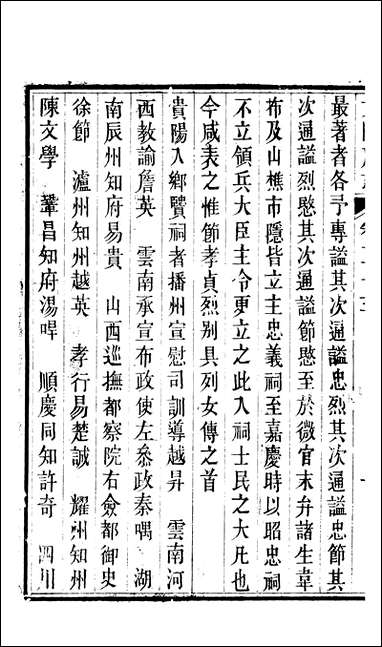 最著者各予專謚其次通謚忠烈其次通謚忠節其
次通謚烈愍其次通謚節愍至於微官末弁諸生韋
布及山樵市隱皆立主忠義祠至嘉慶時以昭忠祠
不立領兵大臣主令更立之此入祠士民之大凡也
今咸表之惟節孝貞烈别具列女傳之首
貴陽入鄉賢祠者播州宣慰司訓導越昇　雲南河
西教諭詹英　雲南承宣布政使左叅政秦顒　湖
南辰州知府易貴　山西巡撫都察院右僉都御史
徐節　瀘州知州越英　孝行易楚誠　耀州知州
陳文學　鞏昌知府湯㖔　順慶同知許奇　四川